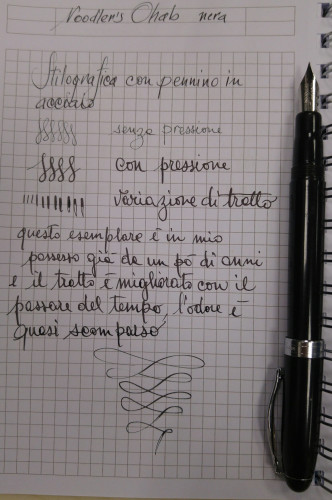 Noodler's Ahab nera
Stilografica con pennino in
acciaio
senza pressione
con pressione
variazione di tratto
questo esemplare è in mio
possesso già da un po di anni
e il tratto è migliorato con il
passare del tempo, l'odore è
quasi scomparso